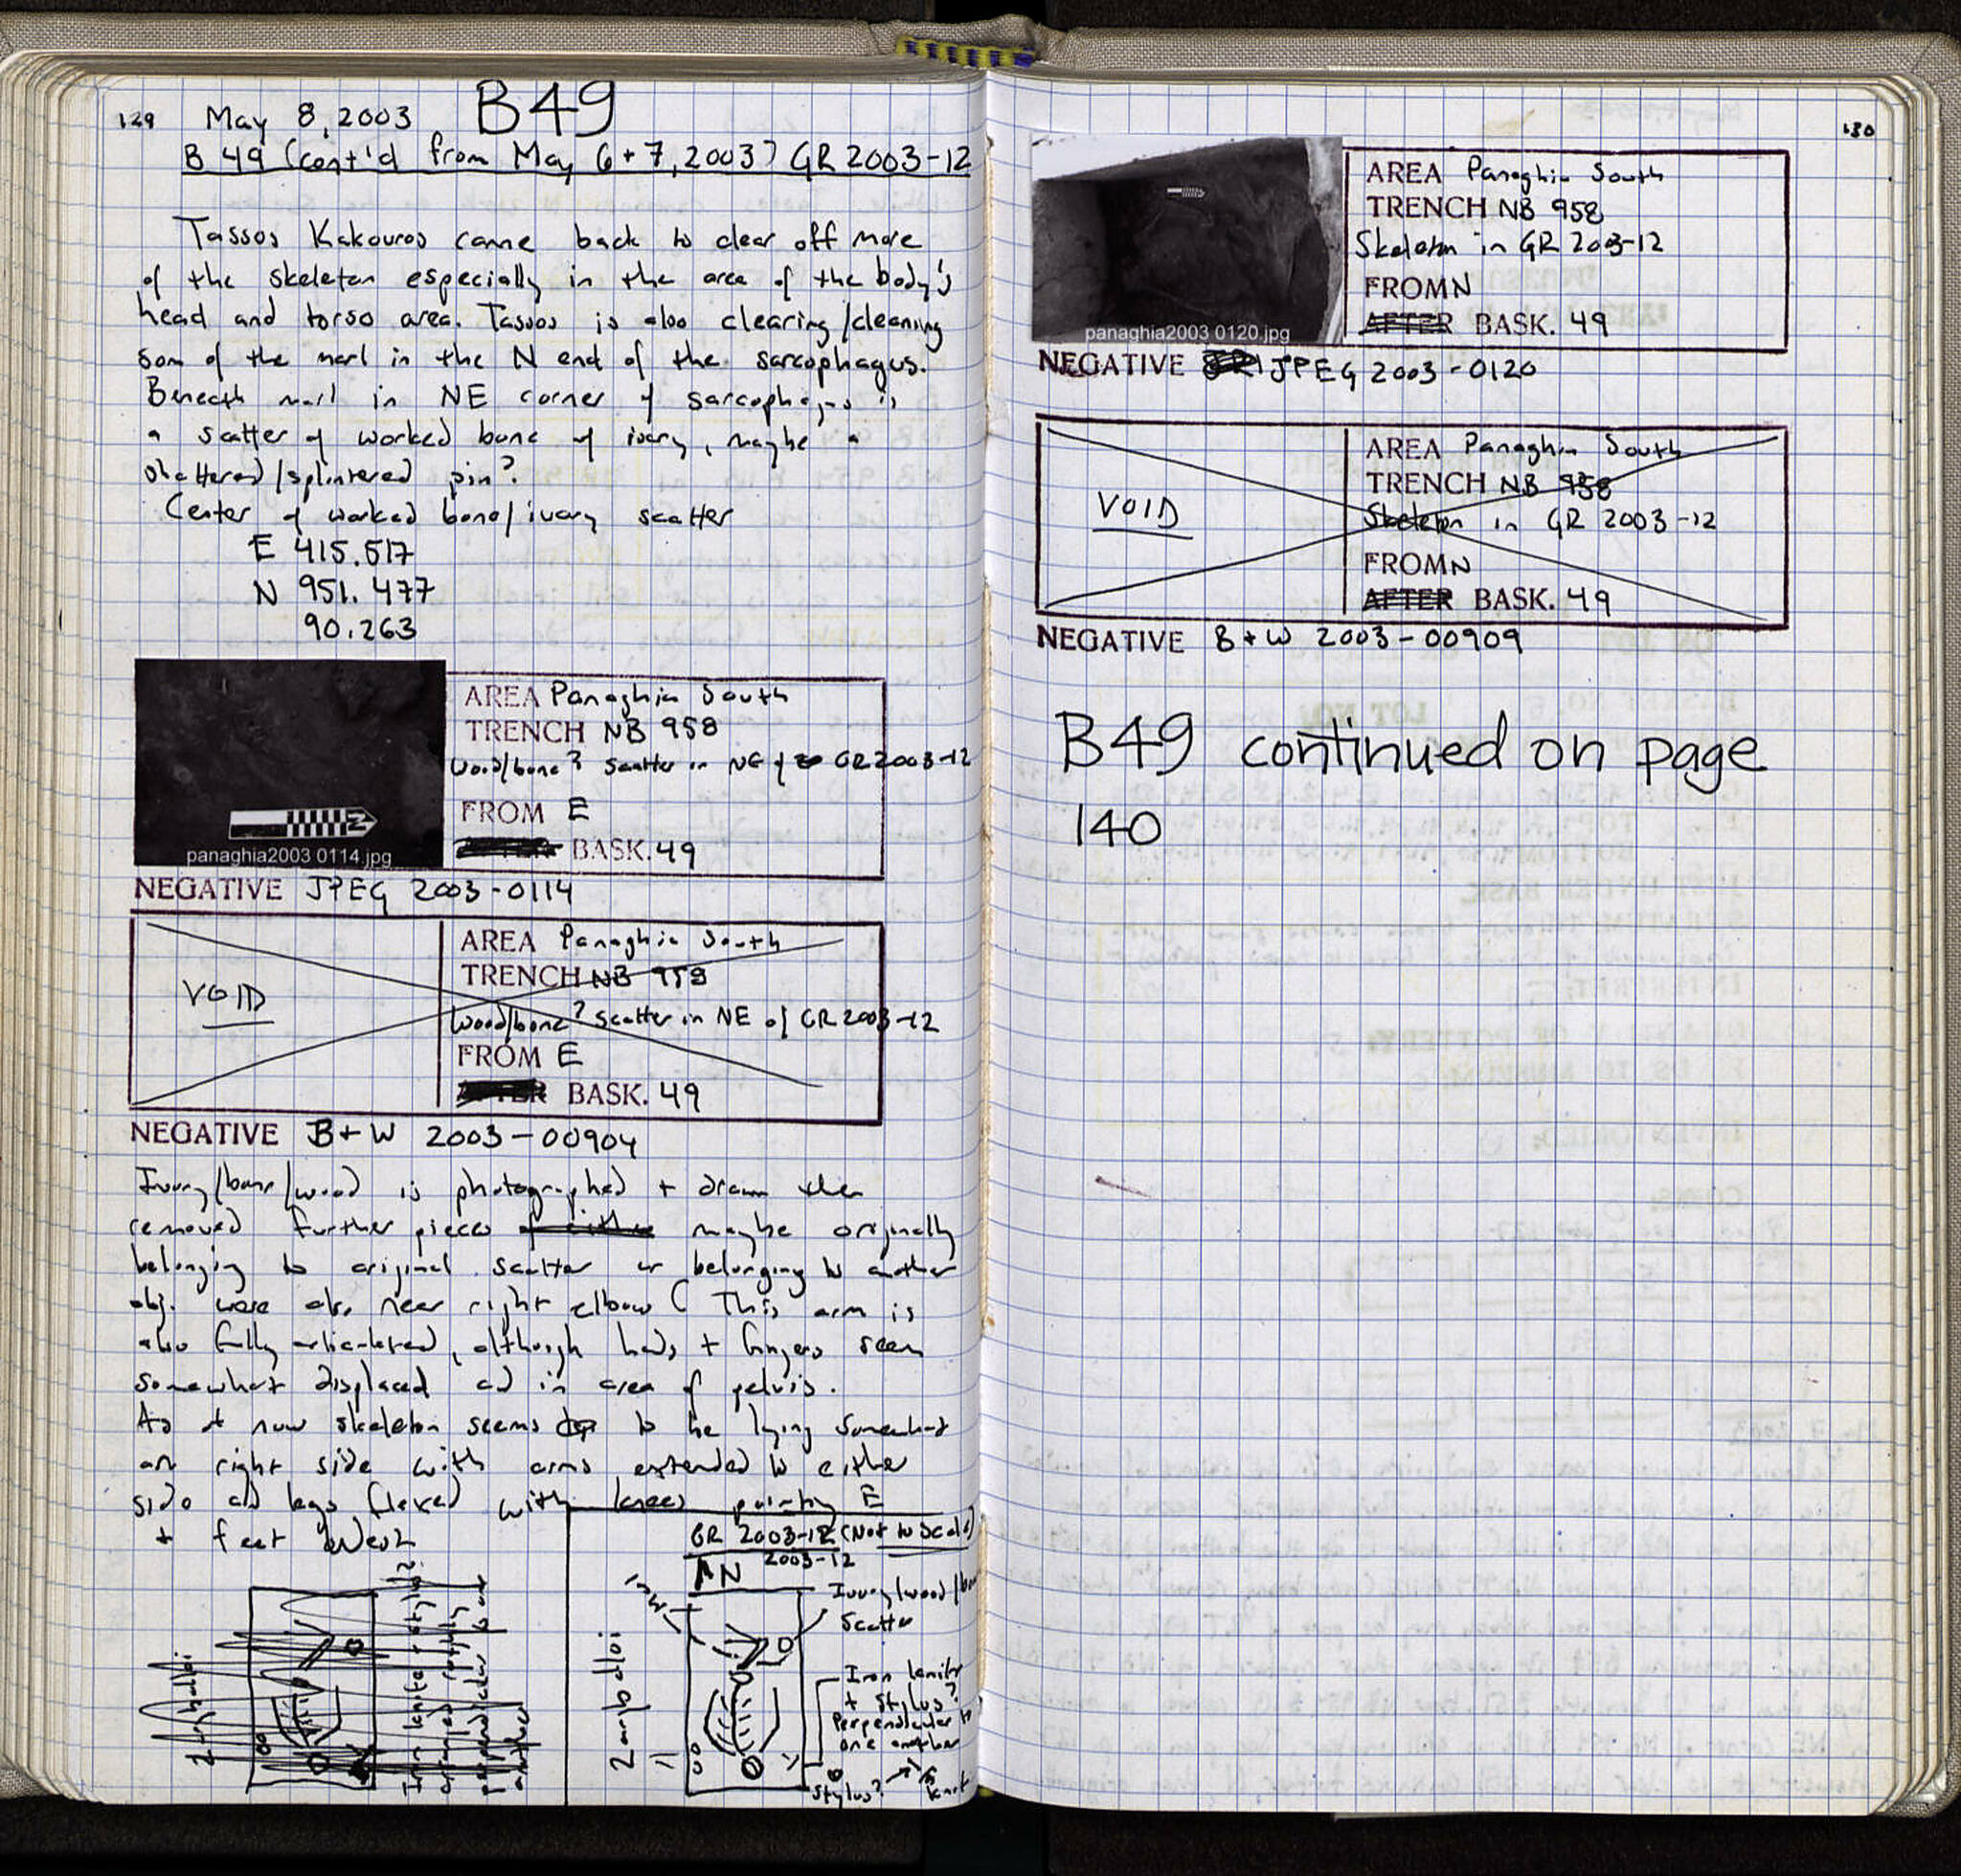 129 May 8, 2003 B49
B 49 (cont'd from May 6+7, 2003) GR 2003-12
Tassos Kakouros came back to clear off more
of the skeleton especially in the area of the body's
head and torso area. Tassos is also clearing/cleaning
som of the marl in the N end of the sarcophagus.
Beneath marl in NE corner of sarcophagus is
a scatter of worked bone of ivory, maybe a
shattered/splintered pin?
Center of worked bone/ivory scatter
E 415.517
N 951.477
90.263
AREA Panaghia South
TRENCH NB 958
Wood/bone? scatter in NE of GR 2003-12
FROM E
BASK. 49
panaghia2003 0114.jpg
NEGATIVE JPEG 2003-0114
VOID
AREA Panaghia South
TRENCH NB 958
Wood/bone? scatter in NE of GR 2003-12
FROM E
AFTER BASK. 49
NEGATIVE B+W 2003-00904
Ivory/bone/wood is photographed + drawn then
removed further pieces maybe originally
belonging to original scatter or belonging to another
obj. were also near right elbow (This arm is
also fully articulated, although hands + fingers seem
somewhat displaced and in area of pelvis.
As of now skeleton seems to be lying somewhat
on right side with arms extended to either
side and legs flexed with knees pointing E
+ feet West
GR 2003-12 (Not to Scale)
2003-12
N
Ivory/wood/bone
Scatter
2 amphalloi
Iron knife
+ Stylus?
Perpendicular to
one another
Stylus?
knife
2 amphalloi
Iron knife + stylus?
arranged roughly
perpendicular to one
another
130
panaghia2003 0120.jpg
AREA Panaghia South
TRENCH NB 958
Skeleton in GR 2003-12
FROM N
AFTER BASK. 49
NEGATIVE JPEG 2003-0120
VOID
AREA Panaghia South
TRENCH NB 958
Skeleton in GR 2003-12
FROM N
AFTER BASK. 49
NEGATIVE B+W 2003-00909
B49 continued on page
140